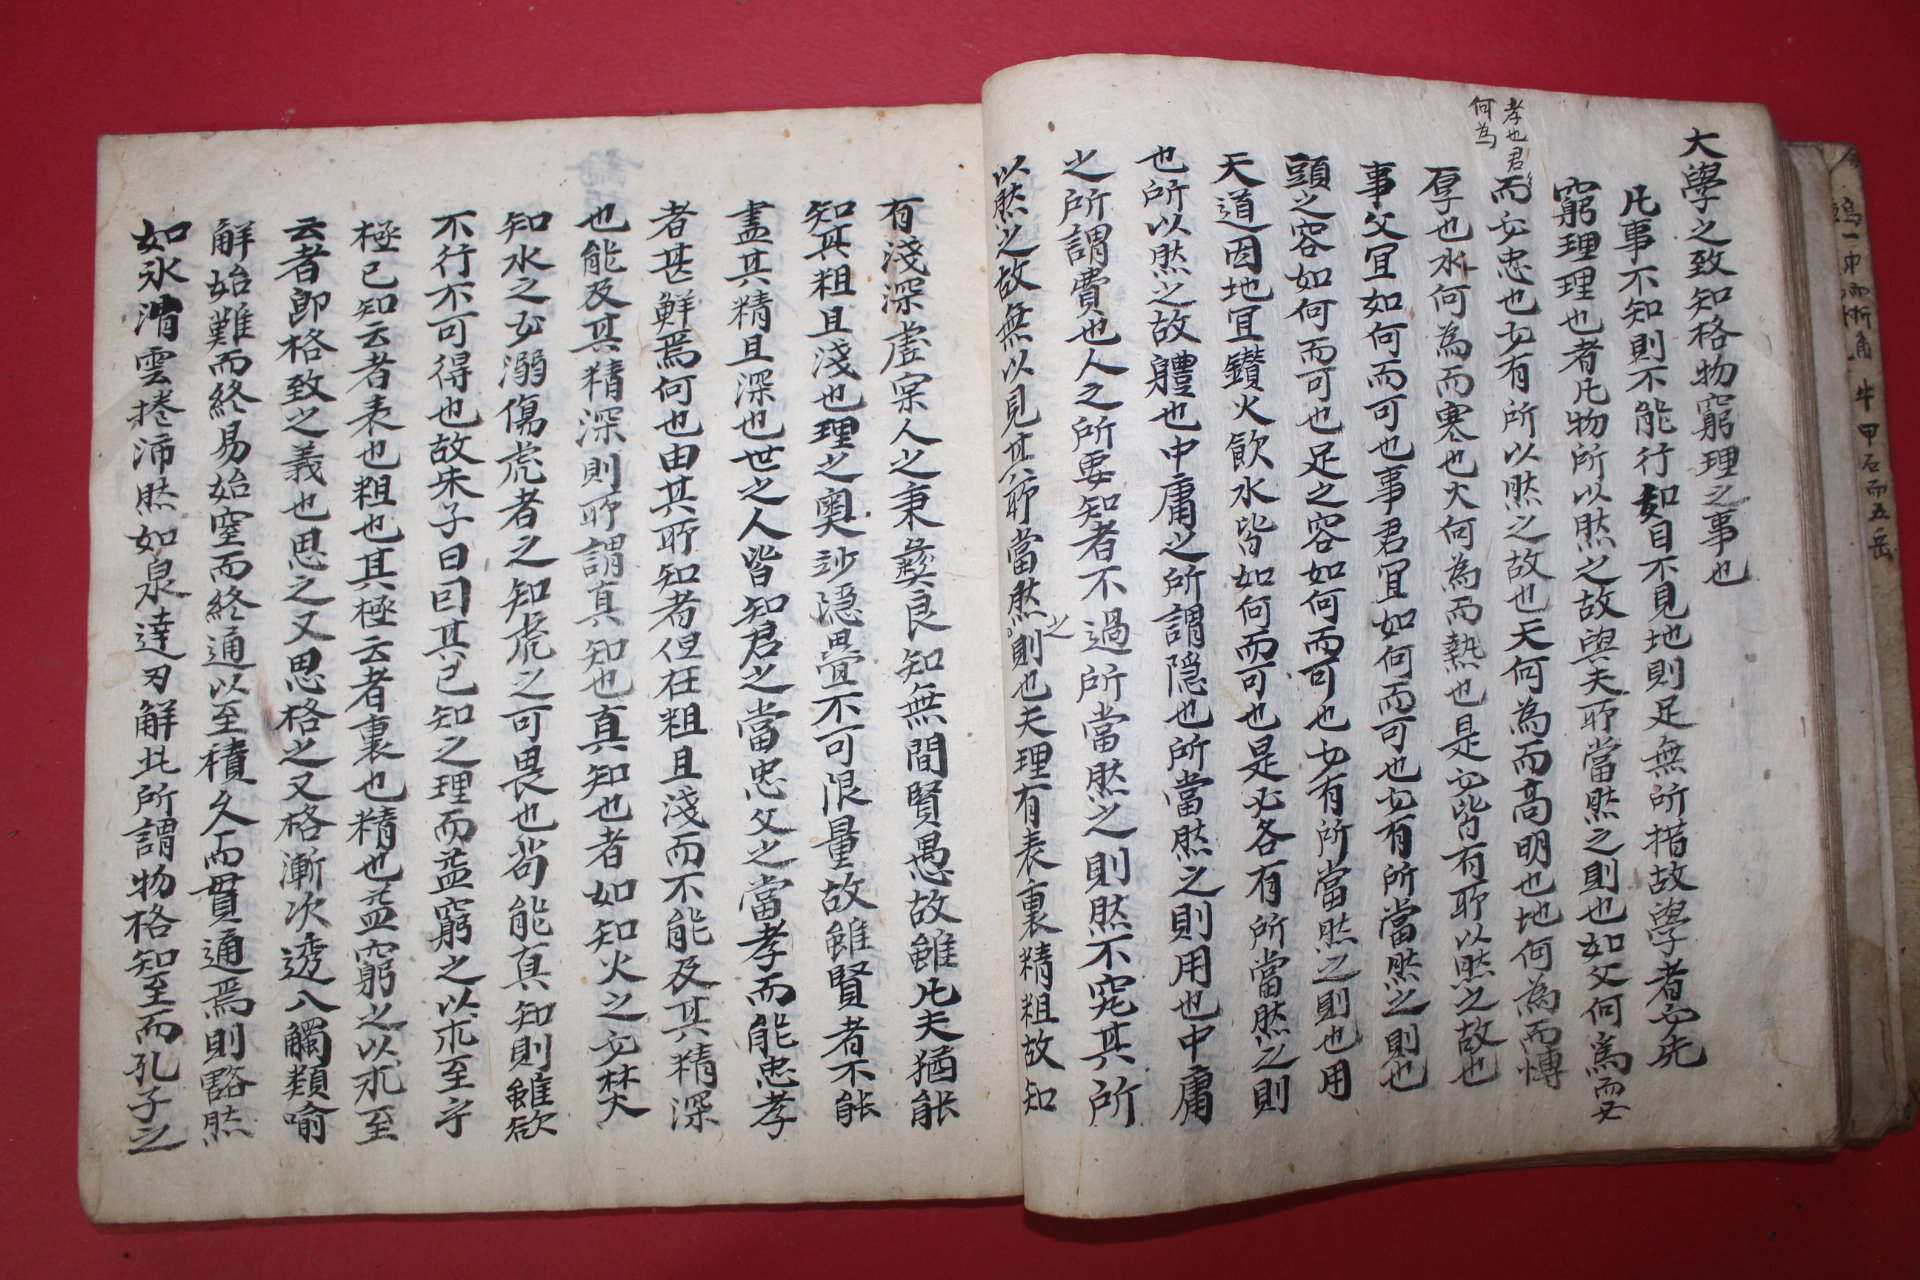 大學之致知格物窮理之事也
凡事不知則不能行如目不見地則足無所措故學者必先
窮理理也者凡物所以然之故與夫所當然之則也如父何為而必
孝也君
何為
而必忠也必有所以然之故也天何為而高明也地何為而博
厚也水何為而寒也火何為而熱也是必皆有所以然之故也
事父宜如何而可也事君宜如何而可也必有所當然之則也
頭之容如何而可也足之容如何而可也必有所當然之則也用
天道因地宜鑽火飲水皆如何而可也是必各有所當然之則
也所以然之故體也中庸之所謂隱也所當然之則用也中庸
之所謂費也人之所要知者不過所當然之則然不究其所
以然之故無以見其所當然之則也夫理有表裏精粗故知
有淺深虛宲人之秉彝良知無間賢愚故雖凡夫猶能
知其粗且淺也理之奧妙隱疊不可限量故雖賢者不能
盡其精且深也世之人皆知君之當忠父之當孝而能忠孝
者甚鮮焉何也由其所知者但在粗且淺而不能及其精深
也能及其精深則所謂真知也真知也者如知火之必焚
知水之必溺傷虎者之知虎之可畏也尚能真知則雖欲
不行不可得也故朱子曰因其已知之理而益窮之以求至乎
極已知云者表也粗也其極云者裏也精也益窮之以求至
云者即格致之義也思之又思格之又格漸次透入觸類喻
解始難而終易始窒而終通以至積久而貫通焉則豁然
如氷消雲捲沛然如泉達刃解此所謂物格知至而孔子之
牛 甲石而五岳